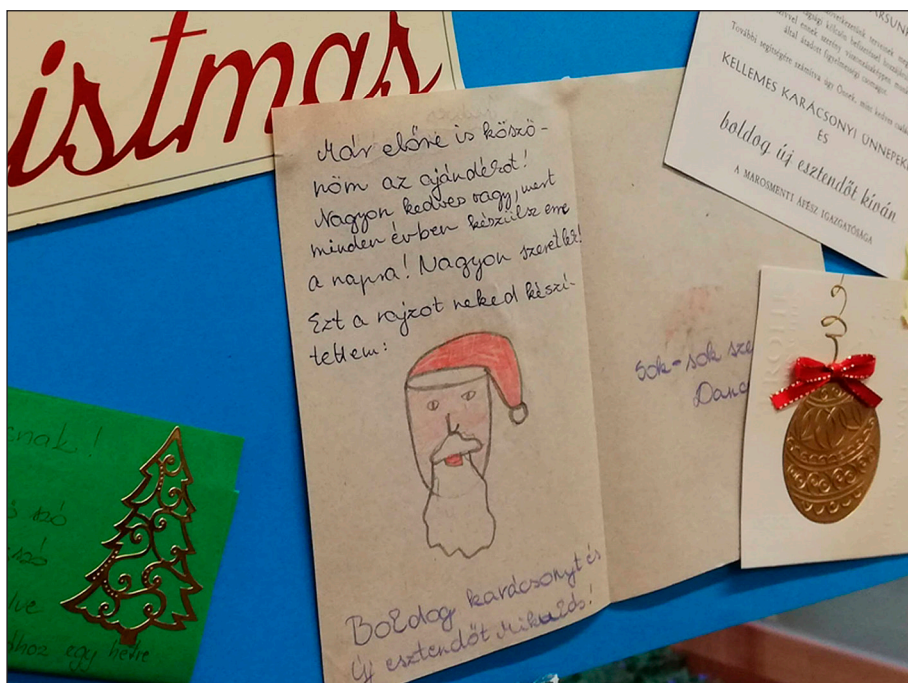 istmas
Már előre is köszö-
nöm az ajándékot!
Nagyon kedves vagy, mert
minden évben készülsz erre
a napra! Nagyon szeretlek!
Ezt a rajzot neked készí-
tettem:
Boldog karácsonyt és
új esztendőt Mikulás!
Sok-sok sze
Danc
További segítségére számítva úgy Önnek, mint kedves csalá
KELLEMES KARÁCSONYI ÜNNEPEKE
ÉS
boldog új esztendőt kíván
A MAROSMENTI ÁFÉSZ IGAZGATÓSÁGA
snak!
szó
szó
lve
dhoz egy hétre